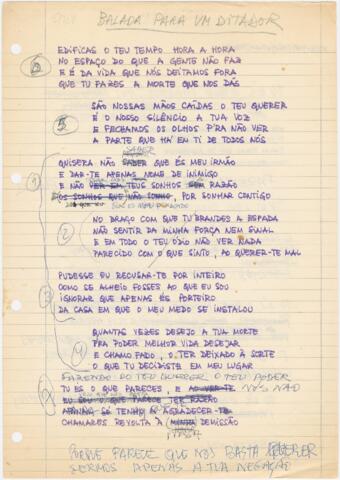 BALADA PARA UM DITADOR
EDIFICAS O TEU TEMPO HORA A HORA
NO ESPAÇO DO QUE A GENTE NÃO FAZ
E É DA VIDA QUE NÓS DEITAMOS FORA
QUE TU FAZES A MORTE QUE NOS DÁS
SÃO NOSSAS MÃOS CAÍDAS O TEU QUERER
5 É O NOSSO SILÊNCIO A TUA VOZ
E FECHAMOS OS OLHOS P'RA NÃO VER
A PARTE QUE HÁ EM TI DE TODOS NÓS
SABER
1 QUISERA NÃO SABER QUE ÉS MEU IRMÃO
E DAR-TE APENAS NOME DE INIMIGO
E NÃO VER EM TEUS SONHOS SEM RAZÃO
OS SONHOS QUE NÃO SONHO, POR SONHAR CONTIGO
2 NO BRAÇO COM QUE TU BRANDES A ESPADA
NÃO SENTIR DA MINHA FORÇA NEM SINAL
E EM TODO O TEU ÓDIO NÃO VER NADA
PARECIDO COM O QUE SINTO, AO QUERER-TE MAL
PUDESSE EU RECUSAR-TE POR INTEIRO
COMO SE ALHEIO FOSSES AO QUE EU SOU
3 IGNORAR QUE APENAS ÉS PORTEIRO
DA CASA EM QUE O MEU MEDO SE INSTALOU
QUANTAS VEZES DESEJO A TUA MORTE
PRA PODER MELHOR VIDA DESEJAR
4 E CHAMO FADO, O TER DEIXADO À SORTE
O QUE TU DECIDISTE EM MEU LUGAR
FAZENDO DO TEU QUERER O TEU PODER
TU ÉS O QUE PARECES, E AO VER-TE NÓS NÃO
EU SOU O QUE PARECE TER RAZÃO
APENAS SÓ TENHO A AGRADECER-TE
CHAMARES REVOLTA À MINHA DEMISSÃO
NOSSA
PORQUE PARECE QUE NOS BASTA QUERER
SERMOS APENAS A TUA NEGAÇÃO